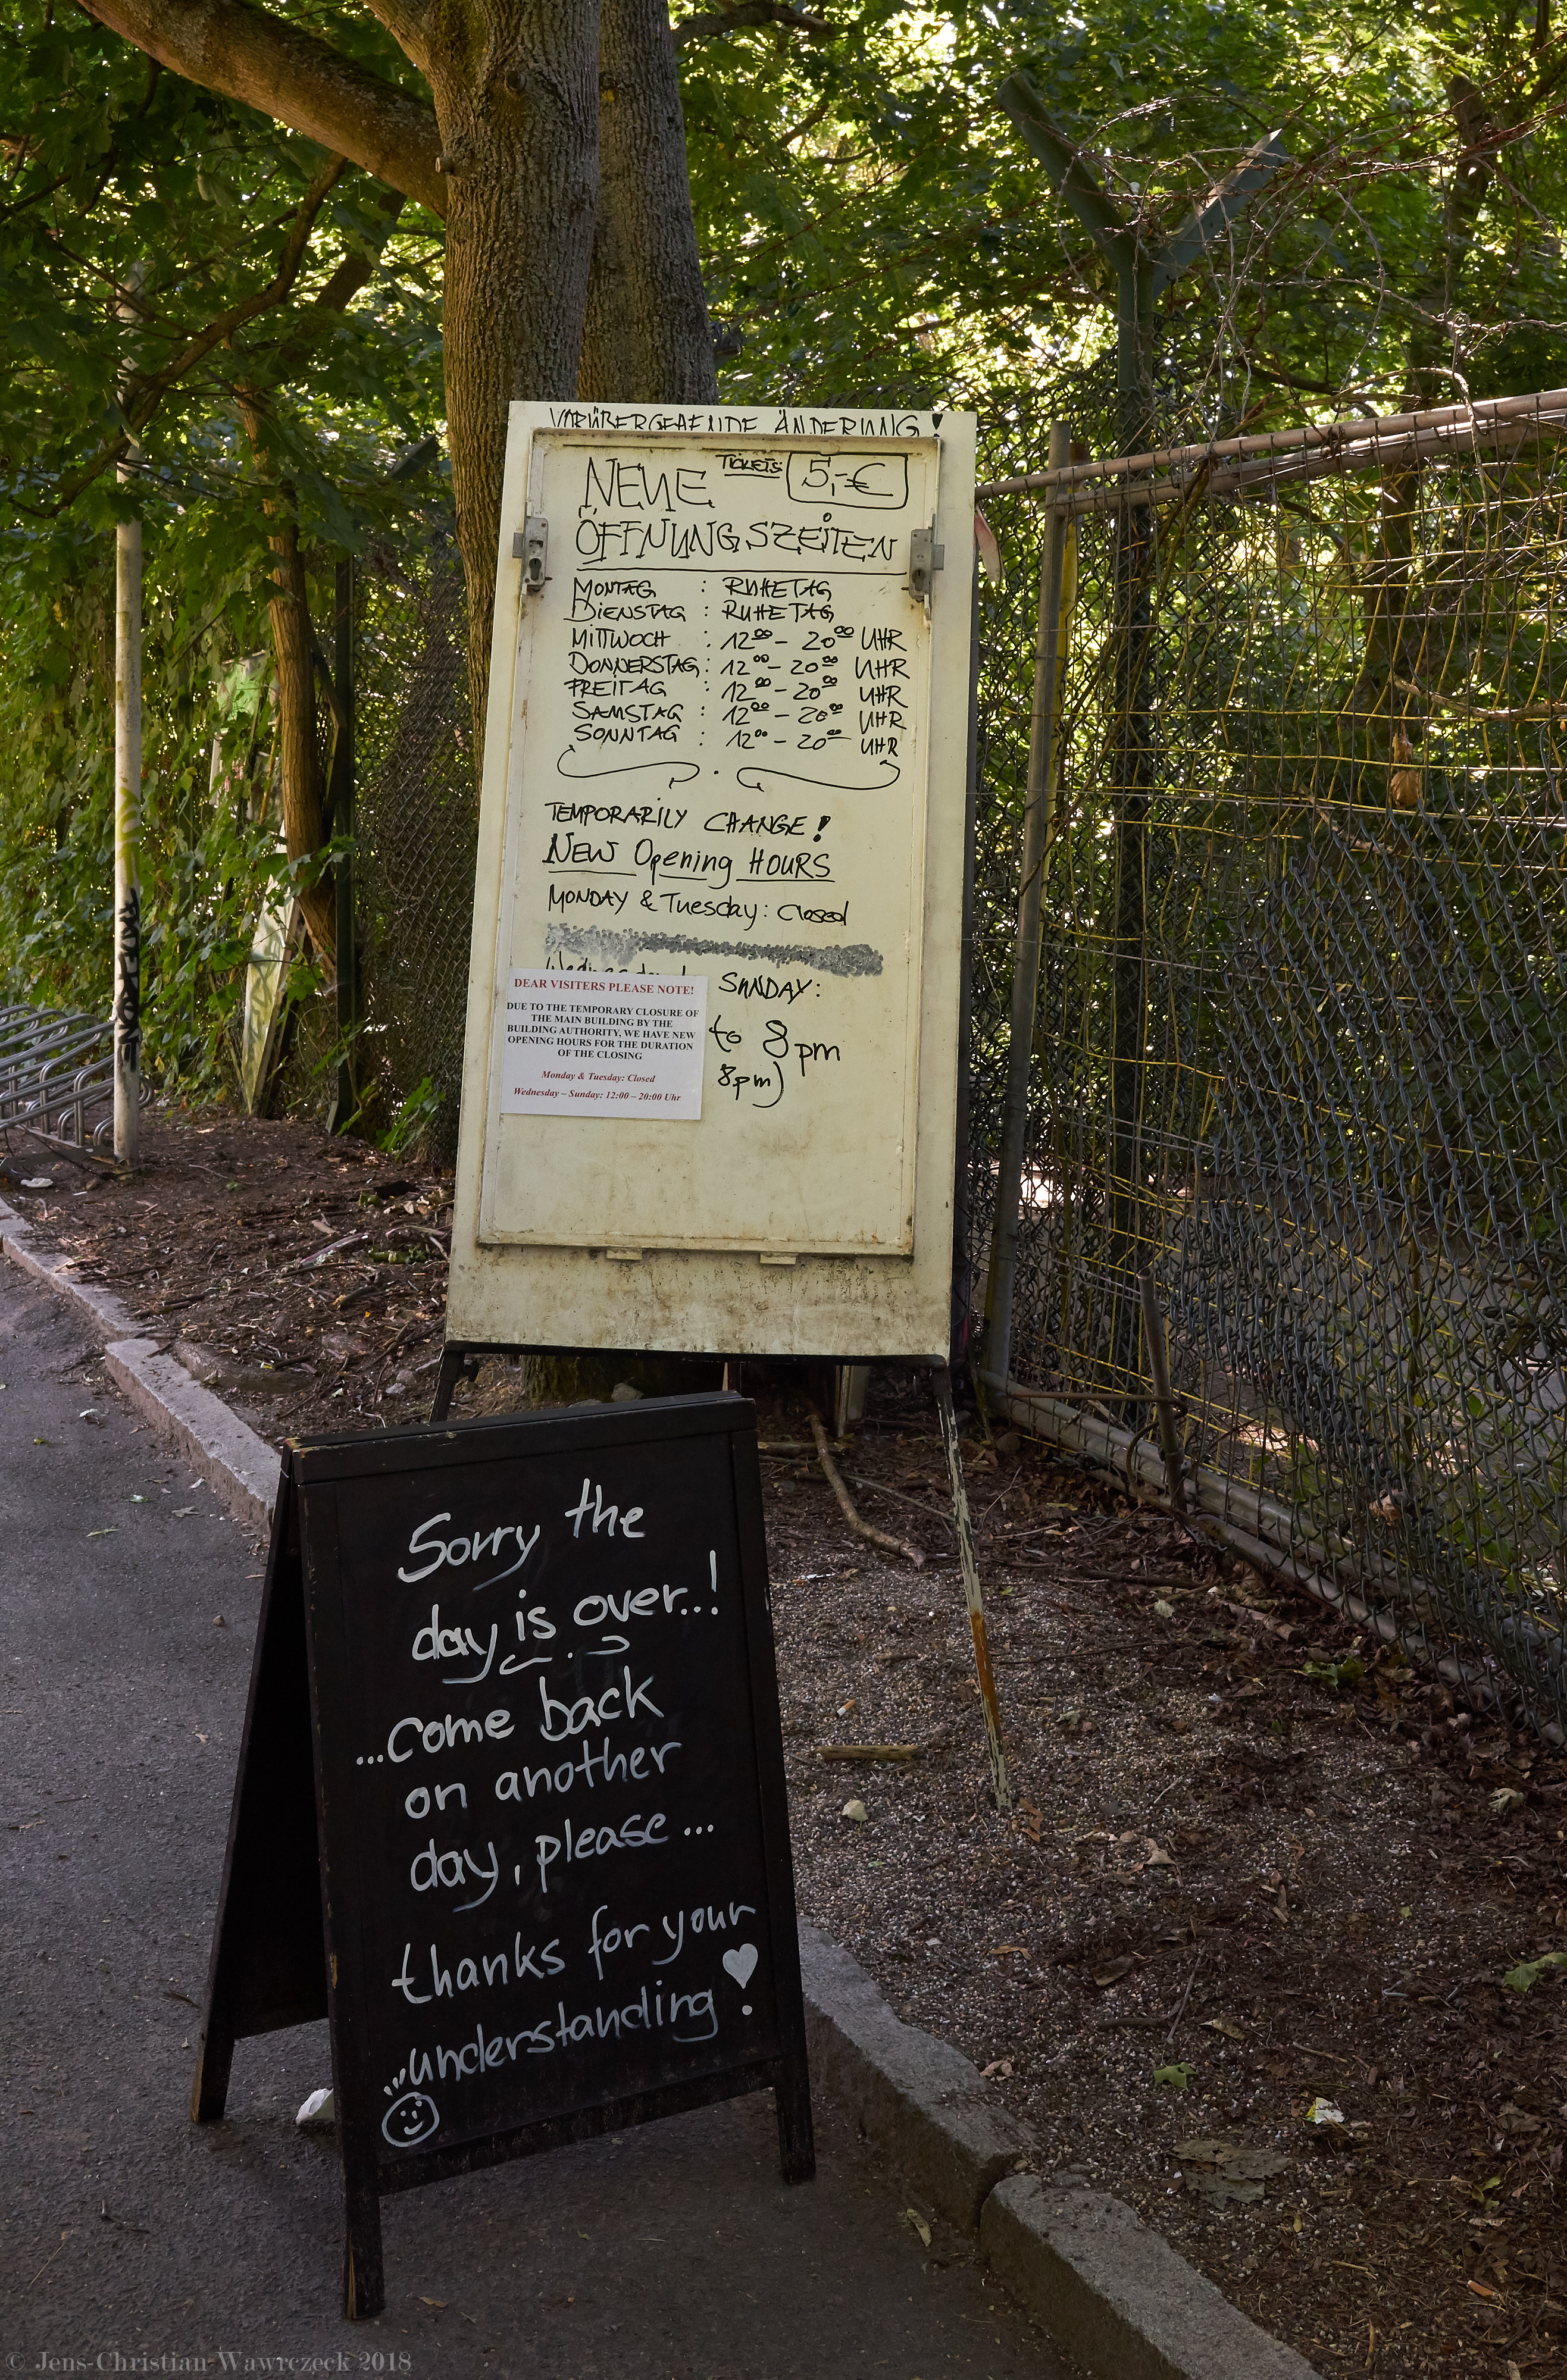 VORÜBERGEHENDE ÄNDERUNG!
NEUE TICKETS 5,-€
ÖFFNUNGSZEITEN
MONTAG : RUHETAG
DIENSTAG : RUHETAG
MITTWOCH : 12⁰⁰ - 20⁰⁰ UHR
DONNERSTAG : 12⁰⁰ - 20⁰⁰ UHR
FREITAG : 12⁰⁰ - 20⁰⁰ UHR
SAMSTAG : 12⁰⁰ - 20⁰⁰ UHR
SONNTAG : 12⁰⁰ - 20⁰⁰ UHR
TEMPORARILY CHANGE!
NEW Opening HOURS
MONDAY & Tuesday: closed
SUNDAY:
to 8pm
8pm)
DEAR VISITERS PLEASE NOTE!
DUE TO THE TEMPORARY CLOSURE OF
THE MAIN BUILDING BY THE
BUILDING AUTHORITY, WE HAVE NEW
OPENING HOURS FOR THE DURATION
OF THE CLOSING
Monday & Tuesday: Closed
Wednesday – Sunday: 12:00 – 20:00 Uhr
Sorry the
day is over..!
...come back
on another
day, please...
thanks for your
understanding!
© Jens-Christian Wawrczeck 2018